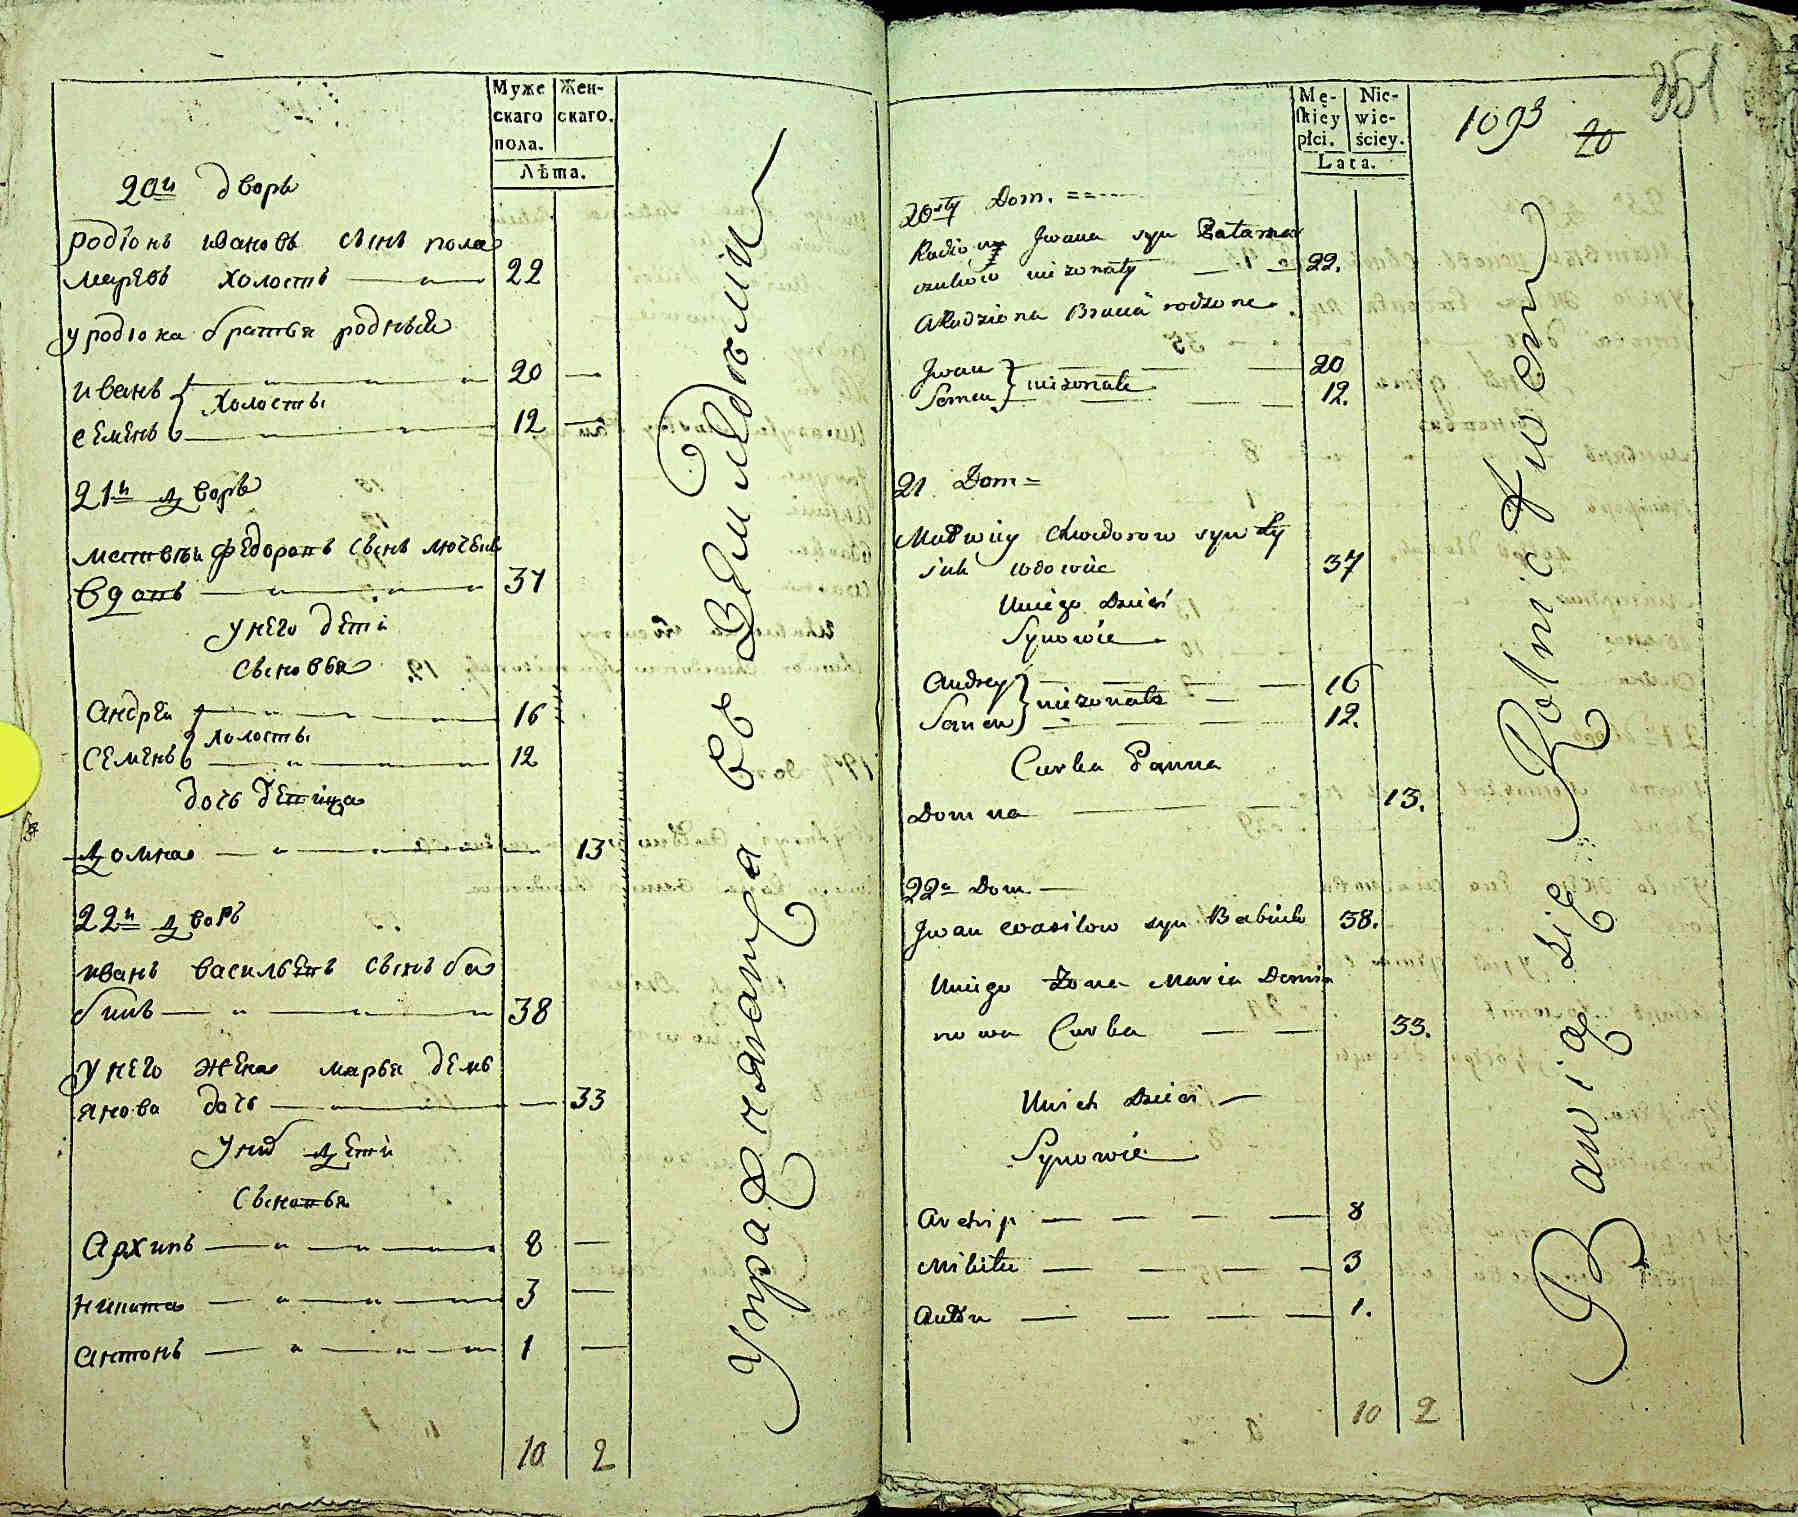 Муже
скаго
пола.
Жен-
скаго.
Лѣта.
20й дворъ
родіонъ ивановъ сынъ пола
маревъ холостъ 22
у родіона братья родные
иванъ 20
холосты
семенъ 12
21й дворъ
матвѣй федоровъ сынъ
вдовъ 37
у него дети
сыновья
андрей 16
холосты
семенъ 12
дочь девица
домна 13
22й дворъ
иванъ васильевъ сынъ ба
бичь 38
у него жена марья демь
янова дочь 33
у нихъ дети
сыновья
архипъ 8
никита 3
антонъ 1
10 2
упражняюца въ Земледелии
Mę-
skiey
płci.
Nie-
wie-
ściey.
Lata.
1093
20
351
20sty Dom.
Radion Jwana syn Patamar
czuków nieżonaty 22.
A Radziona Bracia rodzone
Jwan 20
nieżonate
Semen 12.
21 Dom
Matwiey Chwedorow syn Ły
siuk wdowiec 37
U niego Dzieci
Synowie
Andrey 16
nieżonate
Semen 12.
Curka Panna
Domna 13.
22 Dom
Jwan Wasilow syn Babicz 38.
U niego Żona Maria Demia
nowa Curka 33.
U nich Dzieci
Synowie
Archip 8
Mikita 3
Anton 1.
10 2
Bawią się Rolnictwem